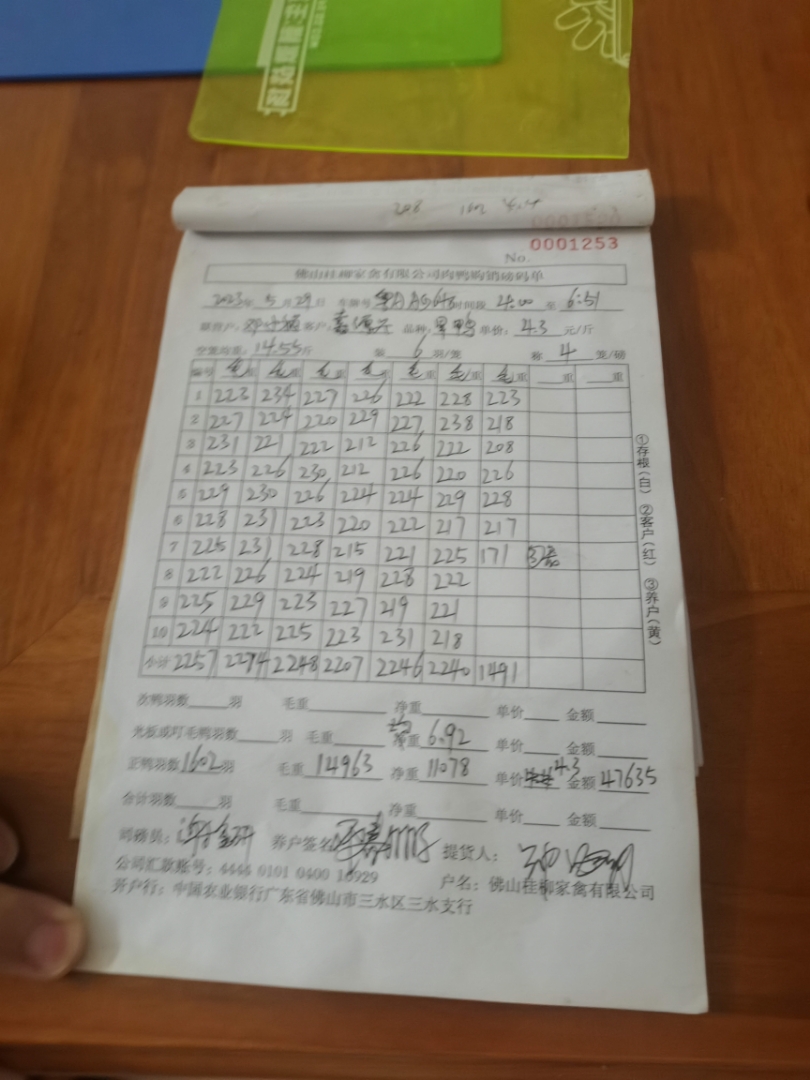 208 1602 4.4
0001253
No.
佛山桂柳家禽有限公司肉鸭购销磅码单
2023年 5月29日 车牌号 时间段 4:00 至 6:51
客户: 品种: 单价: 4.3 元/斤
空笼均重: 14.55斤 装 6 羽/笼 称 4 笼/磅
编号 毛重 毛重 毛重 毛重 毛重 毛重 毛重 重 重
1 223 234 227 226 222 228 223
2 227 224 220 229 227 238 218
3 231 221 222 212 226 222 208
4 223 226 230 212 226 220 226
5 229 230 226 224 224 229 228
6 228 231 223 220 222 217 217
7 225 231 228 215 221 225 171
8 222 226 224 219 228 222
9 225 229 223 227 219 221
10 224 222 225 223 231 218
小计 2257 2274 2248 2207 2246 2240 1491
①存根(白) ②客户(红) ③养户(黄)
次鸭羽数 羽 毛重 净重 单价 金额
光板或盯毛鸭羽数 羽 毛重 净重 6.92 单价 金额
正鸭羽数 1602羽 毛重 14963 净重 11078 单价 4.3 金额 47635
合计羽数 羽 毛重 净重 单价 金额
司磅员: 养户签名 提货人:
公司汇款账号: 4444 0101 0400 16929 户名: 佛山桂柳家禽有限公司
开户行: 中国农业银行广东省佛山市三水区三水支行